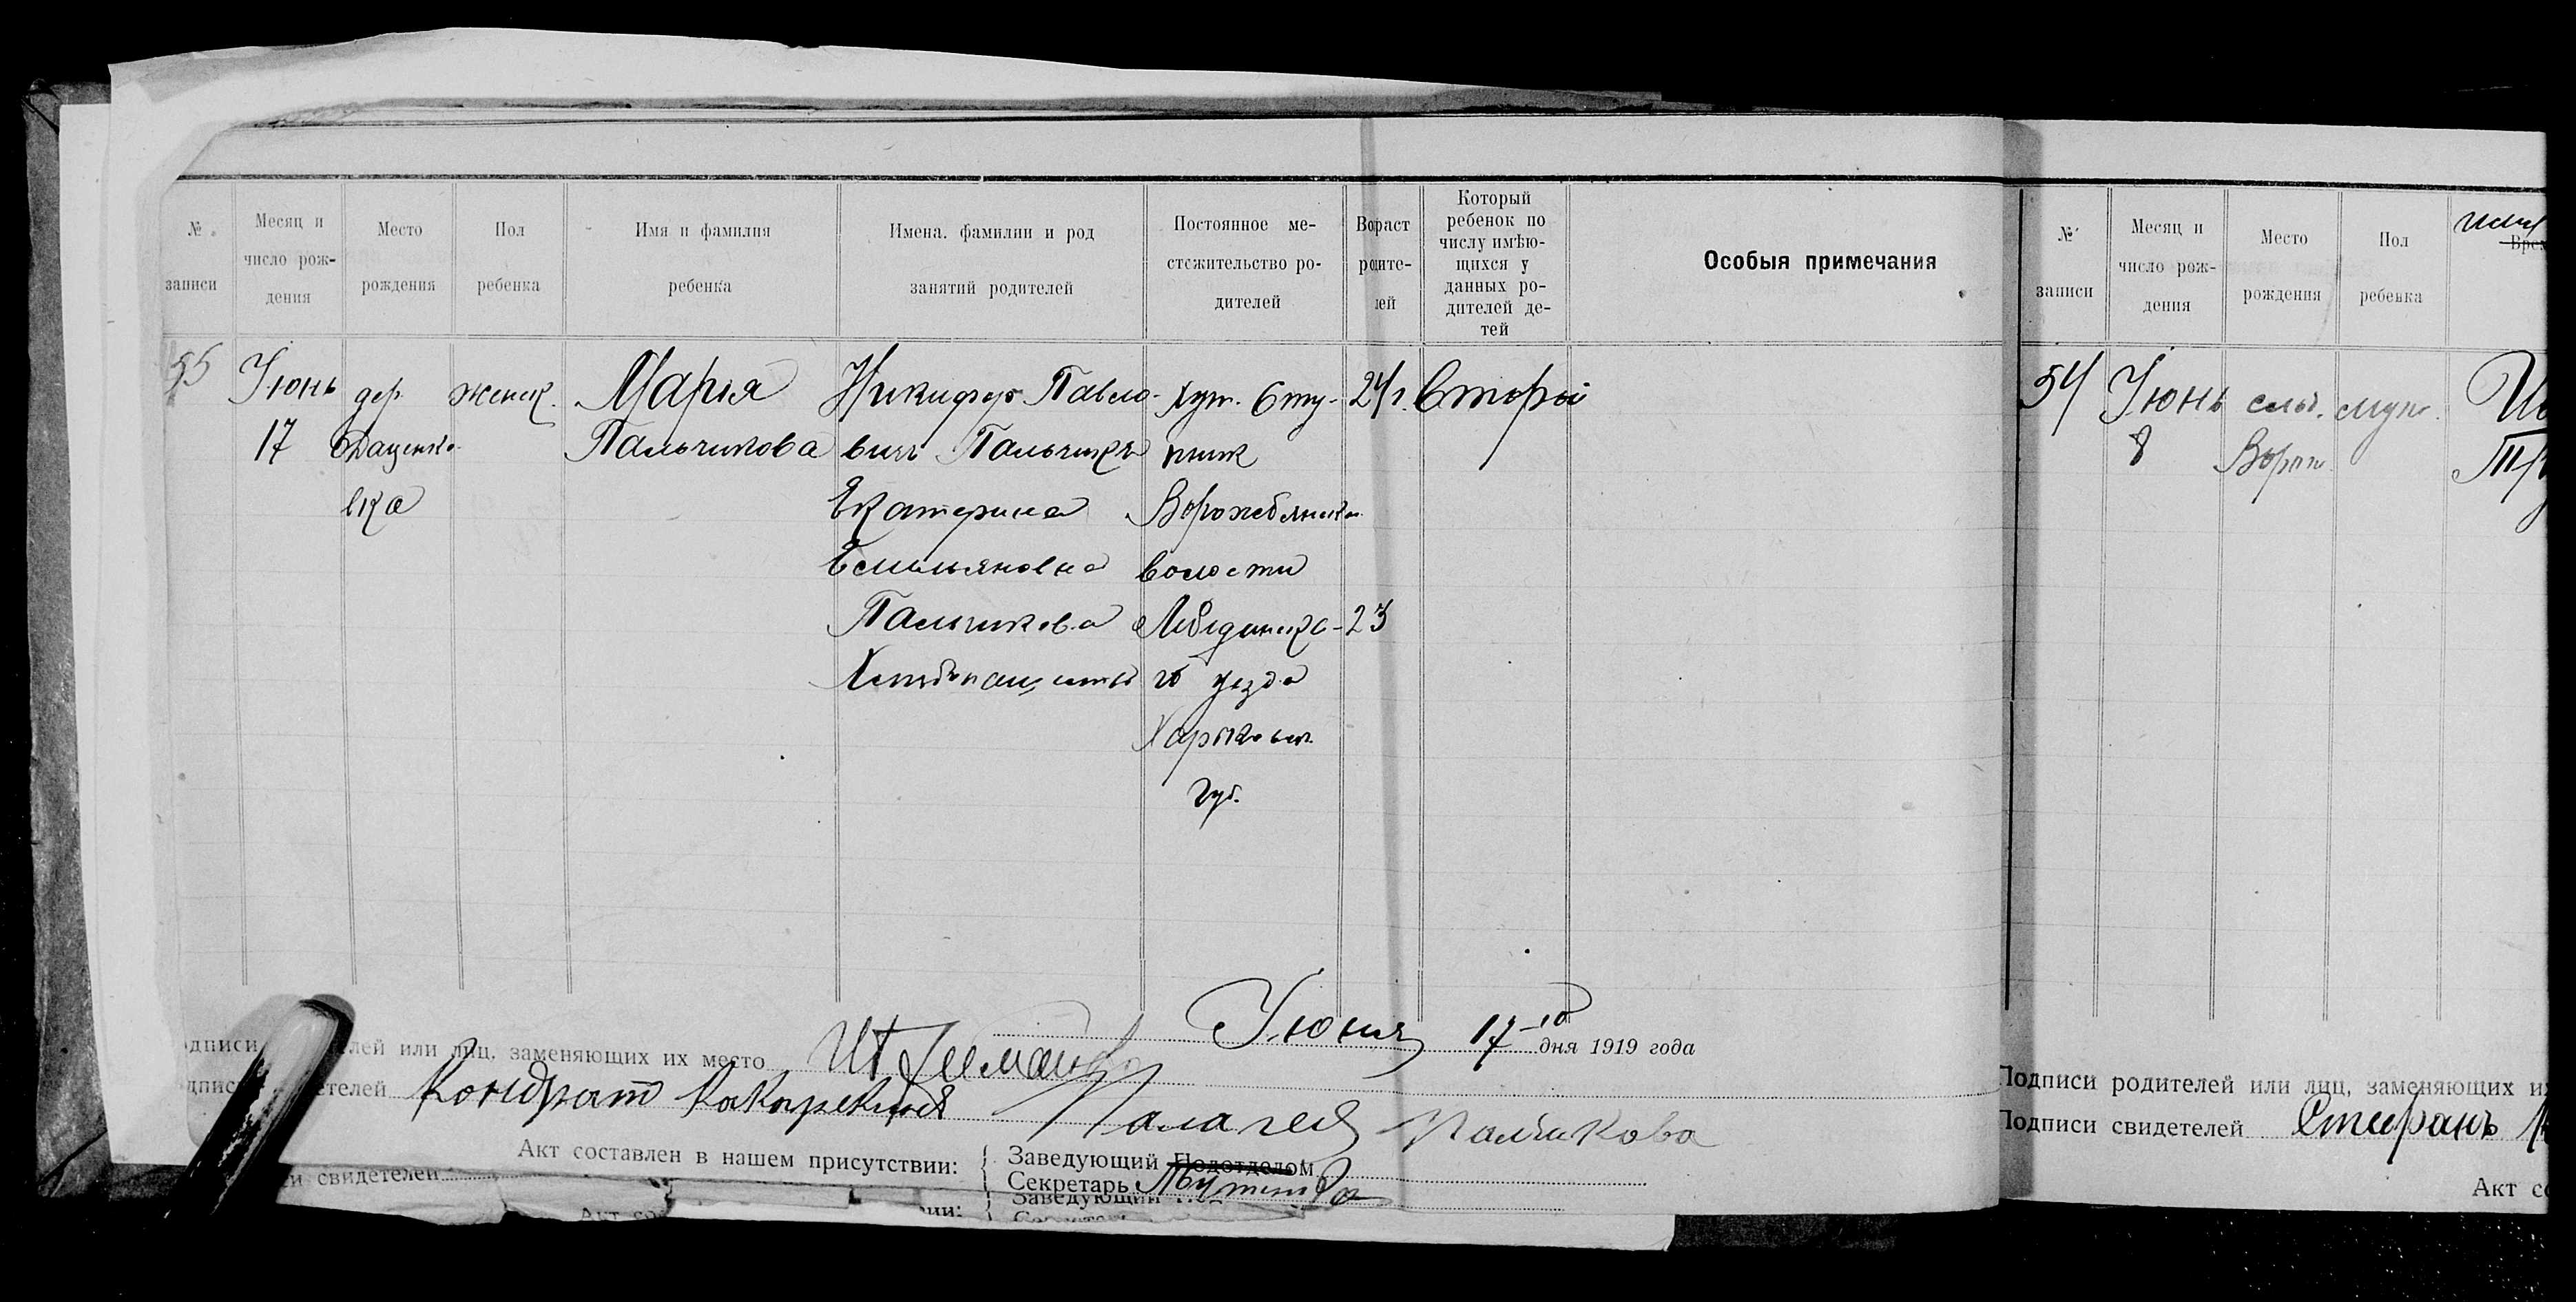 № записи
Месяц и число рождения
Место рождения
Пол ребенка
Имя и фамилия ребенка
Имена, фамилии и род занятий родителей
Постоянное местожительство родителей
Возраст родителей
Который ребенок по числу имѣющихся у данных родителей детей
Особыя примечания
55
Июнь
17
дер.
Даценко-
вка
женск.
Мария
Пальчикова
Никифор Павло-
вич Пальчикъ
Екатерина
Емильяновна
Пальчикова
Хлебопашество
хут. Сту-
пник
Ворожбянской
волости
Лебединска-
го уезда
Харьковск.
губ.
24 г.
23
Второй
Июня 17-го дня 1919 года
одписи лей или лиц, заменяющих их место
детелей Кондрат Палагея Палчикова
Акт составлен в нашем присутствии:
Заведующий Подотделом
Секретарь
и свидетелей
Заведующий
№ записи
Месяц и число рождения
Место рождения
Пол ребенка
54
Июнь
8
слоб.
Ворож
муж.
Подписи родителей или лиц, заменяющих и
Подписи свидетелей Стефанъ
Акт со